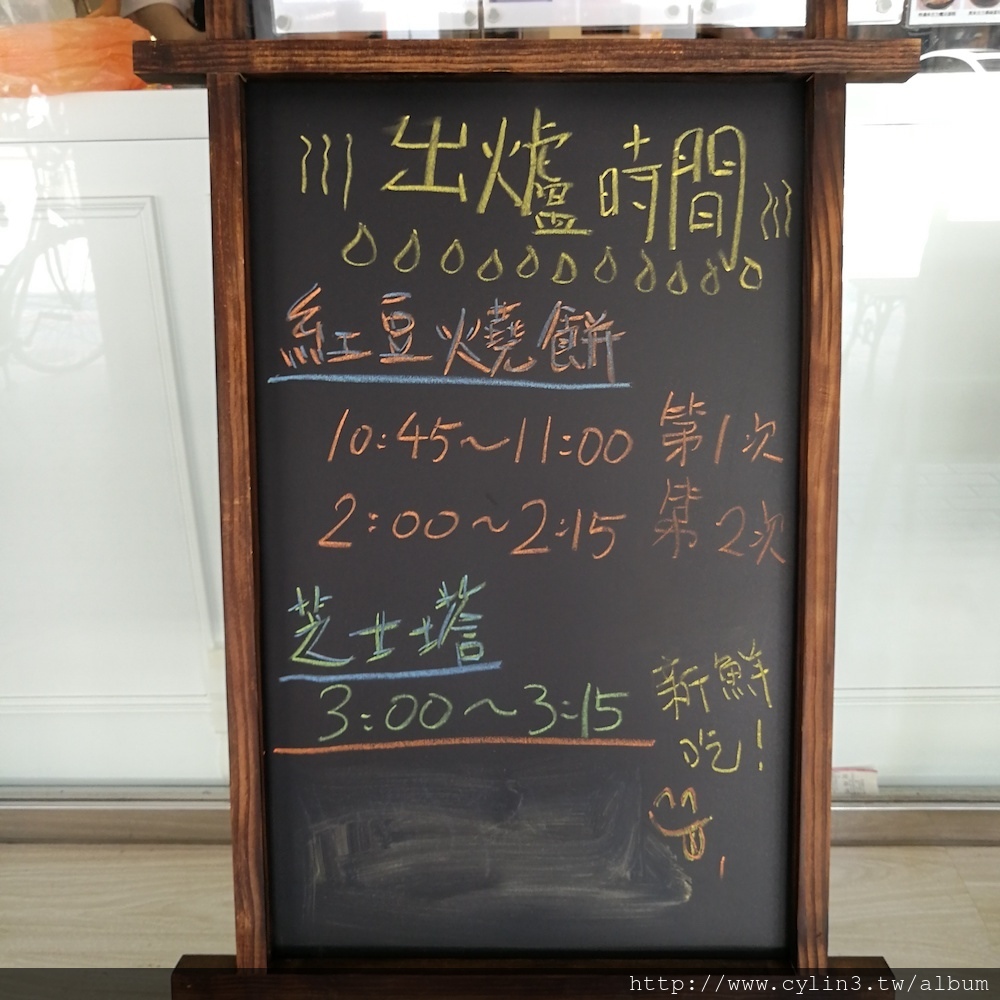 出爐時間
紅豆燒餅
10:45~11:00 第1次
2:00~2:15 第2次
芝士塔
3:00~3:15
新鮮
吃!
http://www.cylin3.tw/album